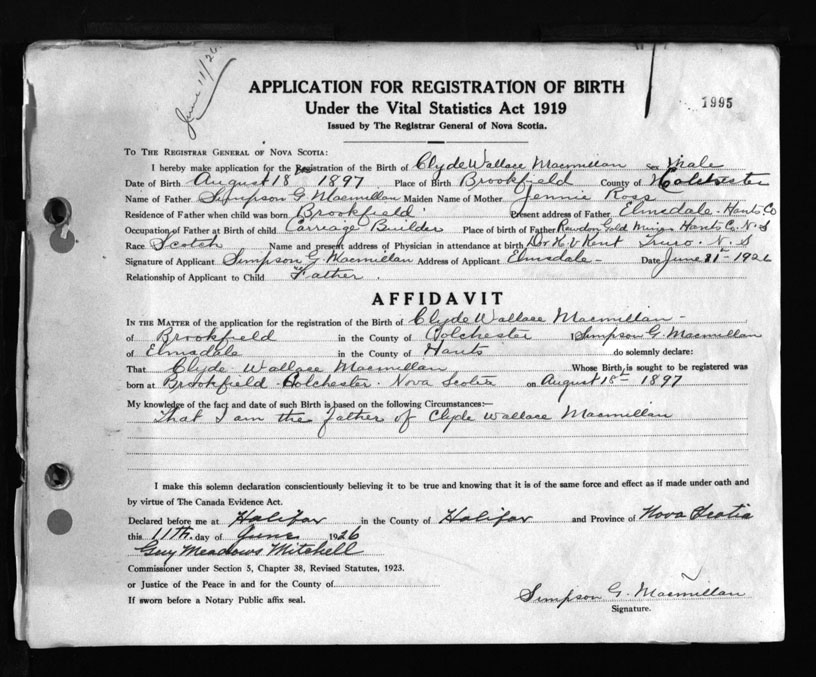 June 11/26
APPLICATION FOR REGISTRATION OF BIRTH
1995
Under the Vital Statistics Act 1919
Issued by The Registrar General of Nova Scotia.
TO THE REGISTRAR GENERAL OF NOVA SCOTIA:
I hereby make application for the Registration of the Birth of Clyde Wallace Macmillan Sex Male
Date of Birth August 18 1897 Place of Birth Brookfield County of Colchester
Name of Father Simpson G Macmillan Maiden Name of Mother Jennie Ross
Residence of Father when child was born Brookfield Present address of Father Elmsdale - Hants Co
Occupation of Father at Birth of child Carriage Builder Place of birth of Father Rawdon Gold Mines Hants Co. N. S
Race Scotch Name and present address of Physician in attendance at birth Dr H. V Kent Truro N. S
Signature of Applicant Simpson G. Macmillan Address of Applicant Elmsdale - Date June 1926
Relationship of Applicant to Child Father.
AFFIDAVIT
IN THE MATTER of the application for the registration of the Birth of Clyde Wallace Macmillan -
of Brookfield in the County of Colchester I Simpson G. Macmillan
of Elmsdale in the County of Hants do solemnly declare:
That Clyde Wallace Macmillan Whose Birth is sought to be registered was
born at Brookfield - Colchester - Nova Scotia on August 18th 1897
My knowledge of the fact and date of such Birth is based on the following Circumstances:—
That I am the father of Clyde Wallace Macmillan
I make this solemn declaration conscientiously believing it to be true and knowing that it is of the same force and effect as if made under oath and
by virtue of The Canada Evidence Act.
Declared before me at Halifax in the County of Halifax and Province of Nova Scotia
this 11th. day of June 1926
Guy Meadows Mitchell
Commissioner under Section 5, Chapter 38, Revised Statutes, 1923.
or Justice of the Peace in and for the County of
If sworn before a Notary Public affix seal.
Simpson G. Macmillan
Signature.